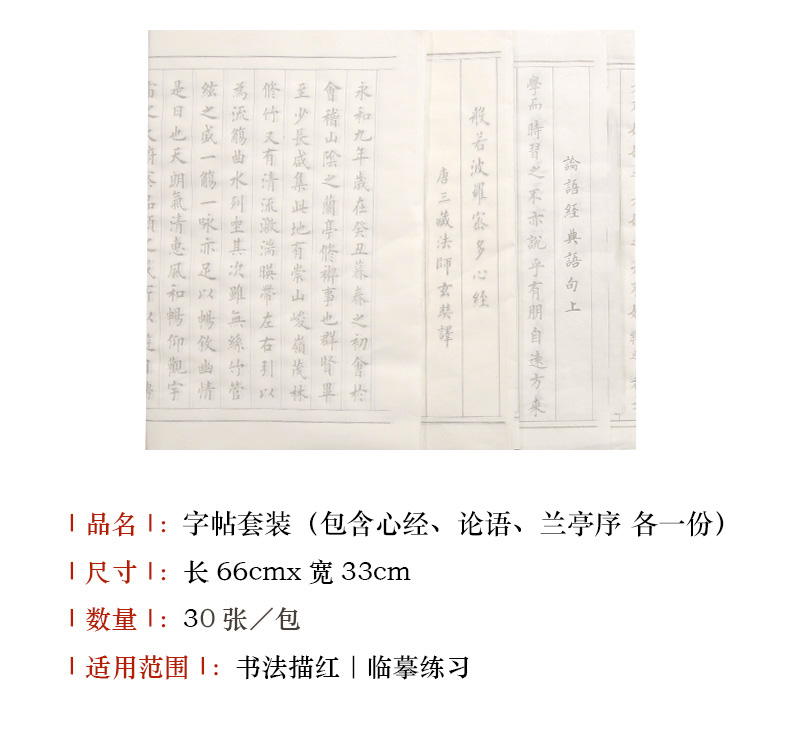 永和九年歲在癸丑暮春之初會於
會稽山陰之蘭亭修禊事也群賢畢
至少長咸集此地有崇山峻嶺茂林
修竹又有清流激湍暎帶左右引以
為流觴曲水列坐其次雖無絲竹管
絃之盛一觴一詠亦足以暢敘幽情
是日也天朗氣清惠風和暢仰觀宇
般若波羅密多心經
唐三藏法師玄奘譯
論語經典語句上
學而時習之不亦說乎有朋自遠方來
| 品名 |：字帖套装（包含心经、论语、兰亭序 各一份）
| 尺寸 |：长 66cmx 宽 33cm
| 数量 |：30 张／包
| 适用范围 |：书法描红 | 临摹练习